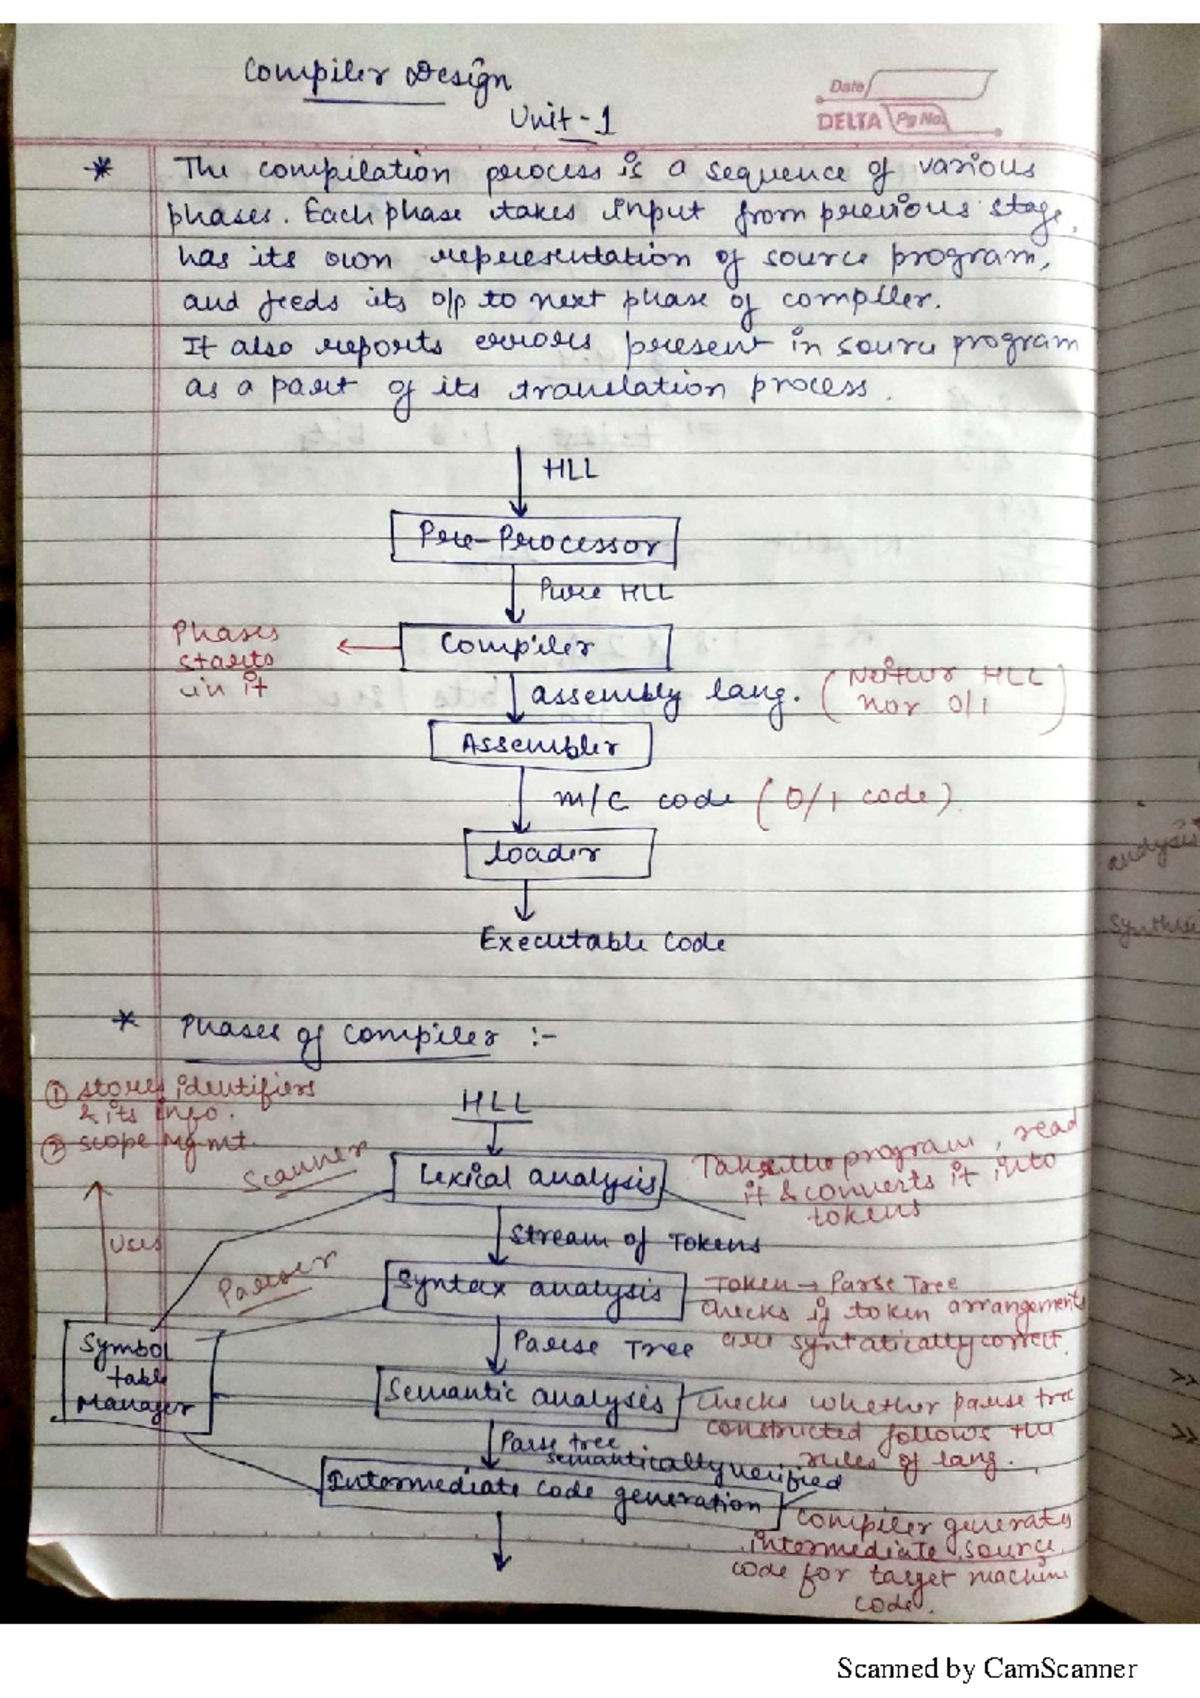 Compiler Design
Unit-1
Date
DELTA Pg No.
* The compilation process is a sequence of various
phases. Each phase takes input from previous stage,
has its own representation of source program,
and feeds its o/p to next phase of compiler.
It also reports errors present in source program
as a part of its translation process.
HLL
Pre-Processor
Pure HLL
Phases
starts
in it
Compiler
assembly lang. (Neither HLL
nor 0/1)
Assembler
m/c code (0/1 code)
loader
Executable code
analysis
Synthesis
* Phases of compiler :-
① stores identifiers
& its info.
② scope Mgmt.
HLL
Scanner
Lexical analysis
Takes the program, read
it & converts it into
tokens
Uses
Stream of Tokens
Parser
Syntax analysis
Token → Parse Tree
checks if token arrangements
are syntatically correct.
Parse Tree
Symbol
table
Manager
Semantic analysis
checks whether parse tree
constructed follows the
rules of lang.
Parse tree
semantically verified
Intermediate code generation
compiler generates
intermediate source
code for target machine
code.
Scanned by CamScanner